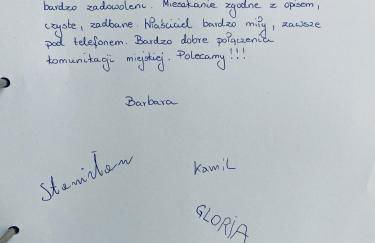 bardzo zadowoleni. Mieszkanie zgodne z opisem,
czyste, zadbane. Właściciel bardzo miły, zawsze
pod telefonem. Bardzo dobre połączenie
komunikacji miejskiej. Polecamy!!!
Barbara
Stanisław
Kamil
GLORIA